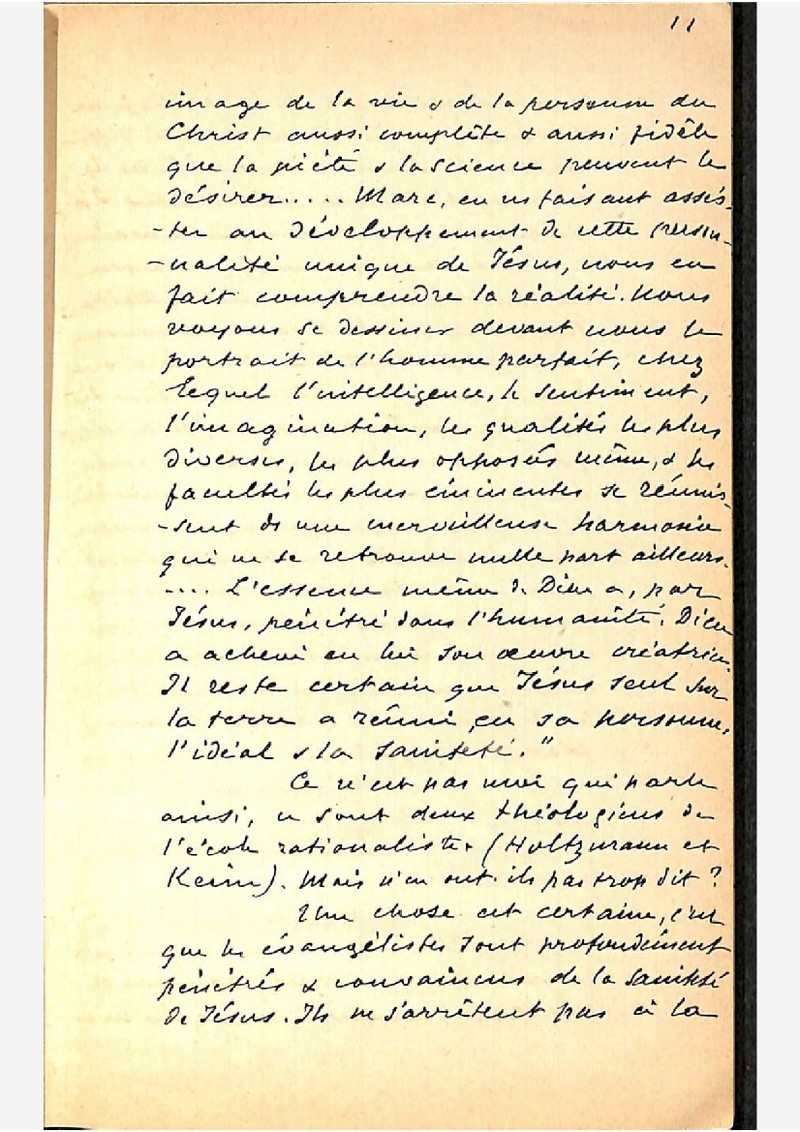 11
image de la vie & de la personne du
Christ aussi complète & aussi fidèle
que la piété & la science peuvent le
désirer..... Marc, en ns faisant assis-
-ter au développement de cette person-
-nalité unique de Jésus, nous en
fait comprendre la réalité. Nous
voyons se dessiner devant nous le
portrait de l'homme parfait, chez
lequel l'intelligence, le sentiment,
l'imagination, les qualités les plus
diverses, les plus opposées même, & les
facultés les plus éminentes se réunis-
-sent ds une merveilleuse harmonie
qui ne se retrouve nulle part ailleurs.
.... L'essence même de Dieu a, par
Jésus, pénétré dans l'humanité. Dieu
a achevé en lui son œuvre créatrice.
Il reste certain que Jésus seul sur
la terre a réuni, en sa personne,
l'idéal & la sainteté."
Ce n'est pas moi qui parle
ainsi, ce sont deux théologiens de
l'école rationaliste (Holtzmann et
Keim). Mais n'en ont-ils pas trop dit ?
Une chose est certaine, c'est
que les évangélistes sont profondément
pénétrés & convaincus de la sainteté
de Jésus. Ils ne s'arrêtent pas à la